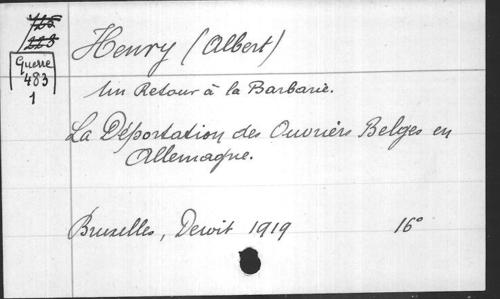 Henry (Albert)
Guerre
483
1
Un Retour à la Barbarie.
La Déportation des Ouvriers Belges en
Allemagne.
Bruxelles, Dewit 1919 16°